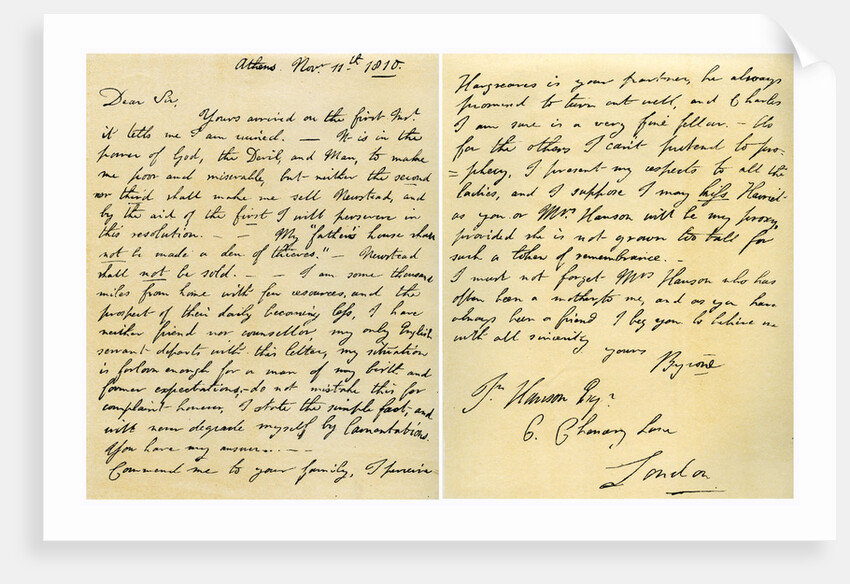 Athens. Novr. 11th. 1810.
Dear Sir,
Yours arrived on the first Inst.
it tells me I am ruined. — It is in the
power of God, the Devil, and Man, to make
me poor and miserable, but neither the second
nor third shall make me sell Newstead, and
by the aid of the first I will persevere in
this resolution. — — My "father's house shall
not be made a den of thieves." — Newstead
shall not be sold. — — I am some thousand
miles from home with few resources, and the
prospect of their daily becoming less, I have
neither friend nor counsellor, my only English
servant departs with this letter, my situation
is forlorn enough for a man of my birth and
former expectations, — do not mistake this for
complaint however, I state the simple fact, and
will never degrade myself by lamentations.
You have my answer. — —
Commend me to your family, I perceive
Hargreaves is your partner, he always
promised to turn out well, and Charles
I am sure is a very fine fellow. — As
for the others I can't pretend to pro-
=phecy, I present my respects to all the
ladies, and I suppose I may kiss Harriet
as you or Mrs Hanson will be my proxy
provided she is not grown too tall for
such a token of remembrance. —
I must not forget Mrs Hanson who has
often been a mother to me, and as you have
always been a friend I beg you to believe me
with all sincerity
yours
Byron
Jn Hanson Esqr.
6. Chancery Lane
London